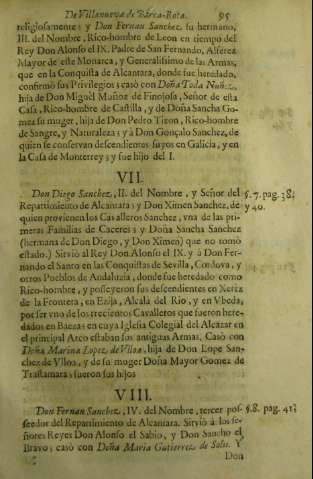 De Villanueva de Barca-Rota. 95
religiosamente: y Don Fernan Sanchez, su hermano,
III. del Nombre, Rico-hombre de Leon en tiempo del
Rey Don Alonso el IX. Padre de San Fernando, Alferez
Mayor de este Monarca, y Generalissimo de las Armas,
que en la Conquista de Alcantara, donde fue heredado,
confirmò sus Privilegios; casò con Doña Toda Nuñez,
hija de Don Miguèl Muñoz de Finojosa, Señor de esta
Casa, Rico-hombre de Castilla, y de Doña Sancha Go-
mez su muger, hija de Don Pedro Tizon, Rico-hombre
de Sangre, y Naturaleza; y à Don Gonçalo Sanchez, de
quien se conservan descendientes suyos en Galicia, y en
la Casa de Monterrey; y fue hijo del I.
VII.
Don Diego Sanchez, II. del Nombre, y Señor del
Repartimiento de Alcantara; y Don Ximen Sanchez, de
quien provienen los Cavalleros Sanchez, vna de las pri-
meras Familias de Caceres; y Doña Sancha Sanchez
(hermana de Don Diego, y Don Ximen) que no tomò
estado.) Sirviò al Rey Don Alonso el IX. y à Don Fer-
nando el Santo en las Conquistas de Sevilla, Cordova, y
otros Pueblos de Andaluzia, donde fue heredado como
Rico-hombre, y posseyeron sus descendientes en Xerez
de la Frontera, en Ezija, Alcalà del Rio, y en Vbeda,
por ser vno de los trecientos Cavalleros que fueron here-
dados en Baeza; en cuya Iglesia Colegial del Alcazar en
el principal Arco estaban sus antiguas Armas. Casò con
Doña Marina Lopez de Vlloa, hija de Don Lope San-
chez de Vlloa, y de su muger Doña Mayor Gomez de
Trastamara; fueron sus hijos
§. 7. pag. 38.
y 40.
VIII.
Don Fernan Sanchez, IV. del Nombre, tercer pos-
seedor del Repartimiento de Alcantara. Sirviò à los se-
ñores Reyes Don Alonso el Sabio, y Don Sancho el
Bravo; casò con Doña Maria Gutierrez de Solis. Y
Don
§. 8. pag. 41.